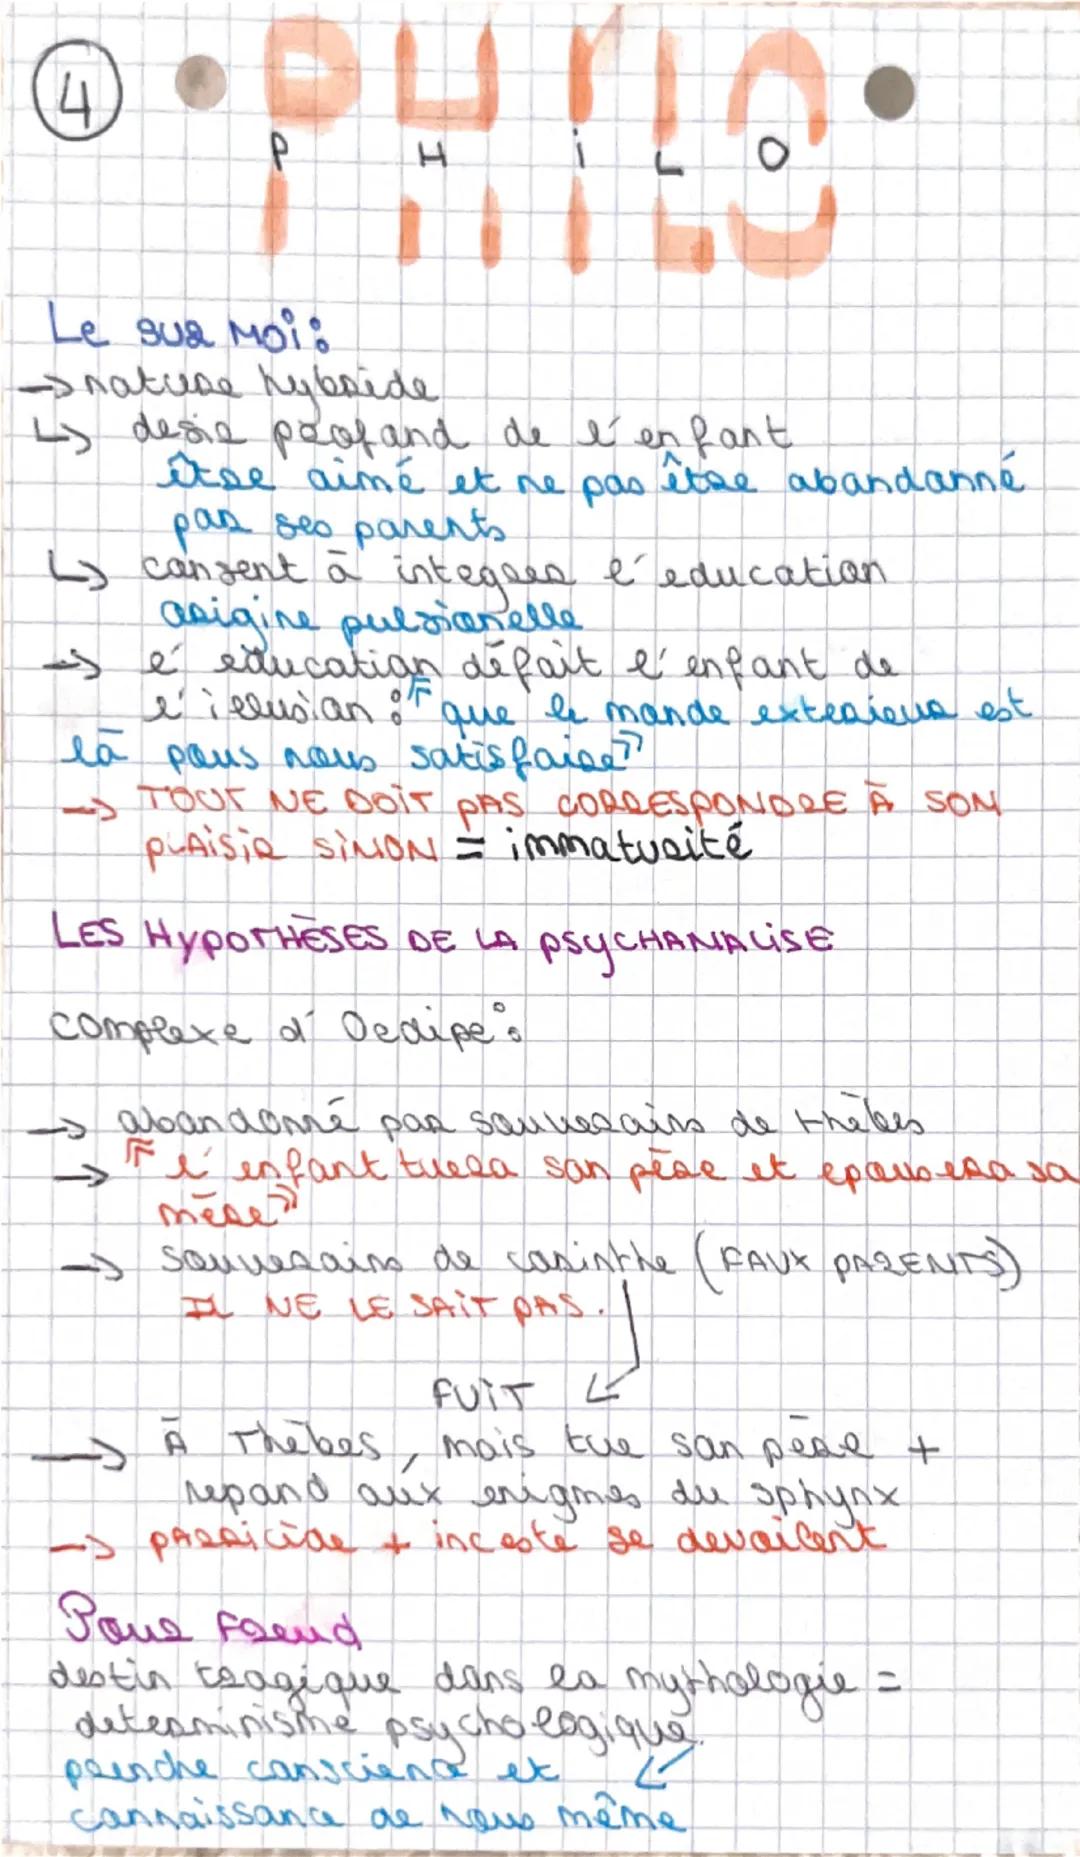 4
PHILO
P H i L O
Le sur Moi :
→ nature hybride
↳ desir profond de l'enfant
être aimé et ne pas être abandonné
par ses parents
↳ consent à integrer l'education
origine pulsionelle
→ l'education défait l'enfant de
l'illusion : "que le monde exterieur est
là pour nous satisfaire"
→ TOUT NE DOIT PAS CORRESPONDRE À SON
PLAISIR SINON = immaturité
LES HYPOTHÈSES DE LA PSYCHANALISE
complexe d'Oedipe :
→ abandonné par souverains de thèbes
→ "l'enfant tuera son père et epousera sa
mère"
→ souverains de corinthe (FAUX PARENTS)
IL NE LE SAIT PAS.
FUIT
→ À Thèbes, mais tue son père +
repond aux enigmes du sphynx
→ parricide + inceste se devoilent
Pour Freud
destin tragique dans la mythologie =
determinisme psychologique.
prendre conscience et
connaissance de nous même